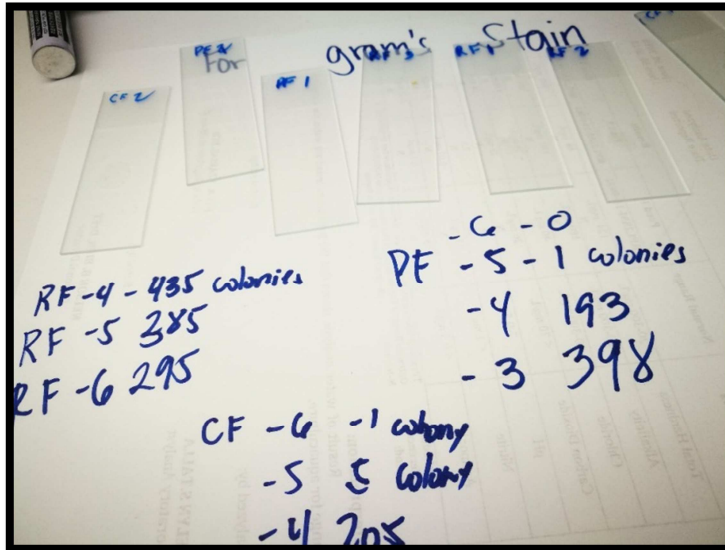 For gram's Stain
CF 2
PF 2
PF 1
RF 3
RF 1
RF 2
RF -4 - 435 colonies
RF -5 385
RF -6 295
-6 - 0
PF -5 - 1 colonies
-4 193
-3 398
CF -6 -1 colony
-5 5 colony
-4 205